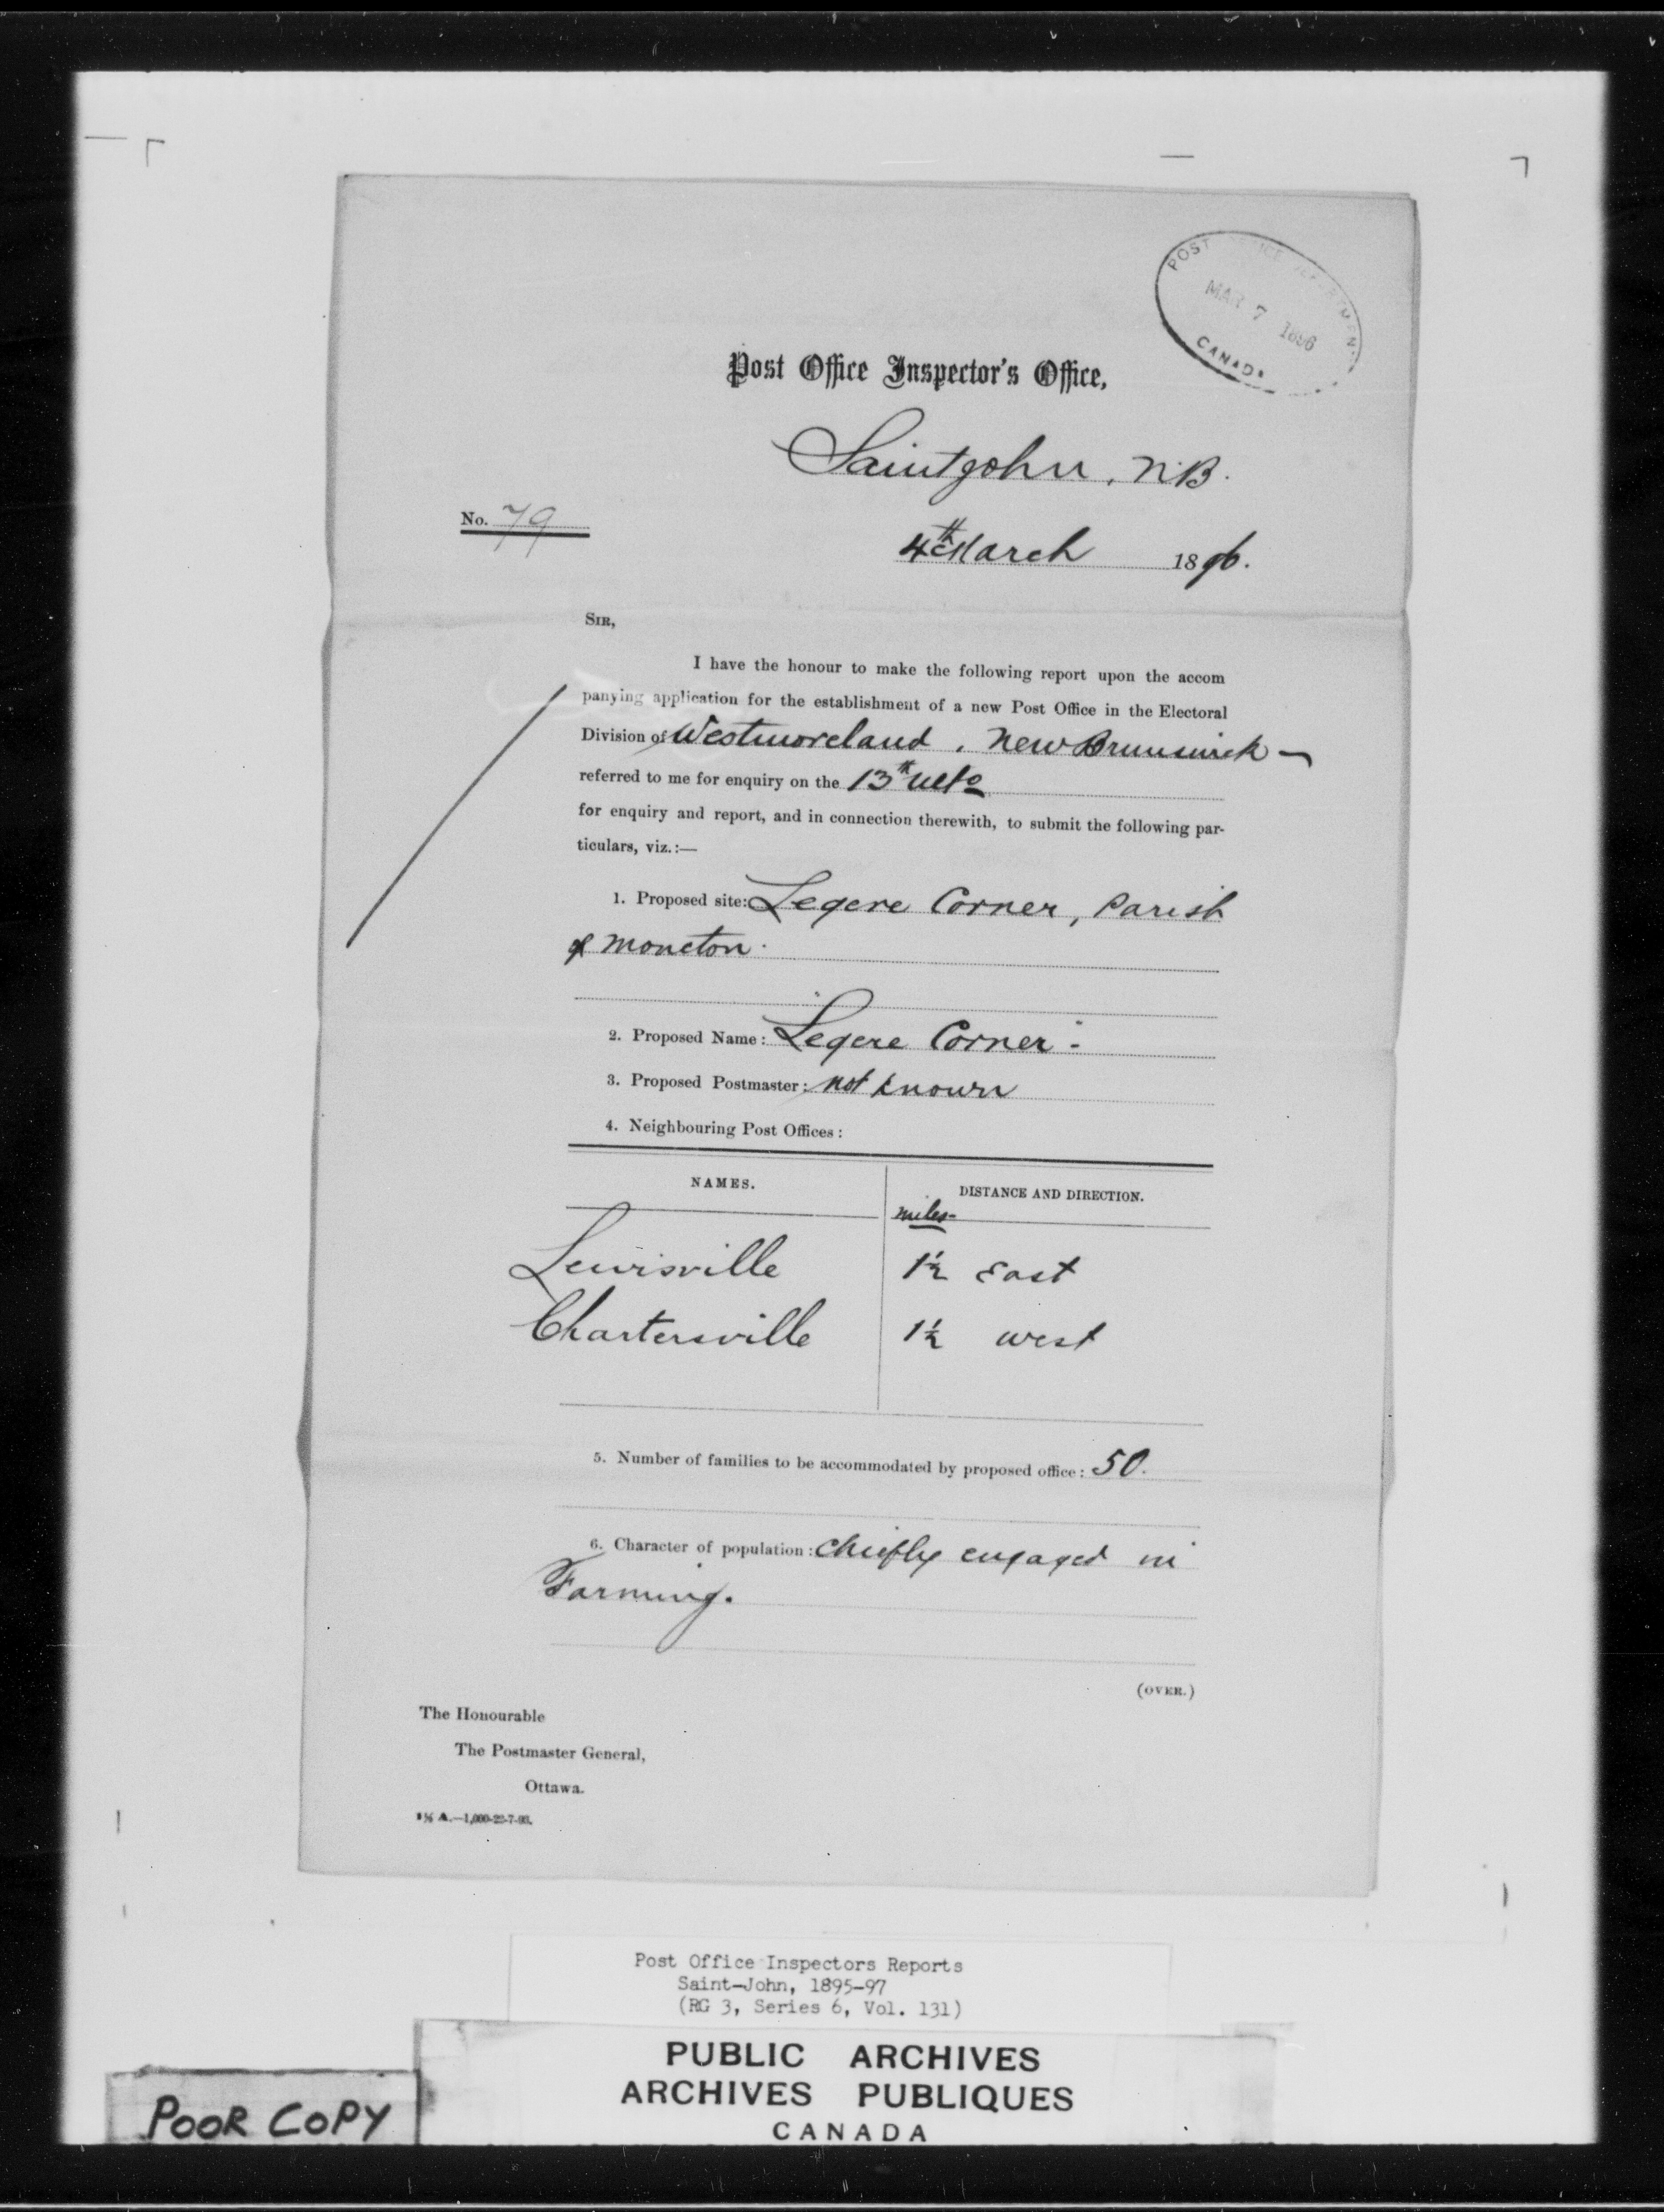 POST OFFICE DEPARTMENT
MAR 7 1896
CANADA
Post Office Inspector's Office,
Saint John, N.B.
No. 79
4th March 1896.
SIR,
I have the honour to make the following report upon the accom
panying application for the establishment of a new Post Office in the Electoral
Division of Westmoreland, New Brunswick —
referred to me for enquiry on the 13th ulto
for enquiry and report, and in connection therewith, to submit the following par-
ticulars, viz.:—
1. Proposed site: Legere Corner, Parish
of Moncton.
2. Proposed Name: "Legere Corner"-
3. Proposed Postmaster: not known
4. Neighbouring Post Offices:
NAMES. DISTANCE AND DIRECTION.
miles-
Lewisville 1½ East
Chartersville 1½ west
5. Number of families to be accommodated by proposed office: 50.
6. Character of population: Chiefly engaged in
Farming.
(OVER.)
The Honourable
The Postmaster General,
Ottawa.
A.—1,000-22-7-93.
Post Office Inspectors Reports
Saint-John, 1895-97
(RG 3, Series 6, Vol. 131)
PUBLIC ARCHIVES
ARCHIVES PUBLIQUES
CANADA
POOR COPY